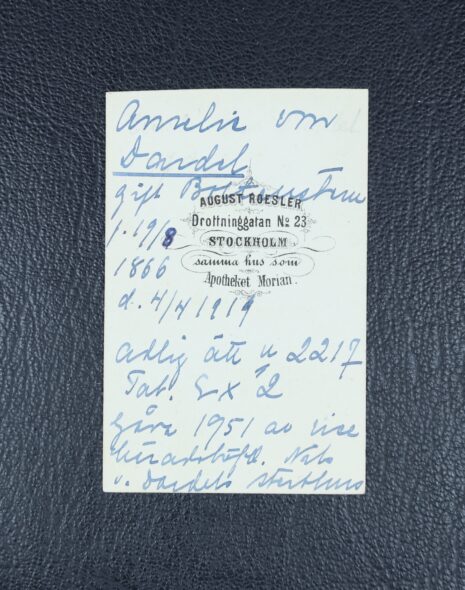 Amelie von
Dardel
gift Boltenstern
AUGUST ROESLER
Drottninggatan No 23
f. 19/8
STOCKHOLM
1866
samma hus som
Apotheket Morian.
d. 4/4 1919
adlig ätt n 2217
Tab.
2
Gåva 1951 av vice
häradshöfd. Nils
v. Dardels sterbhus